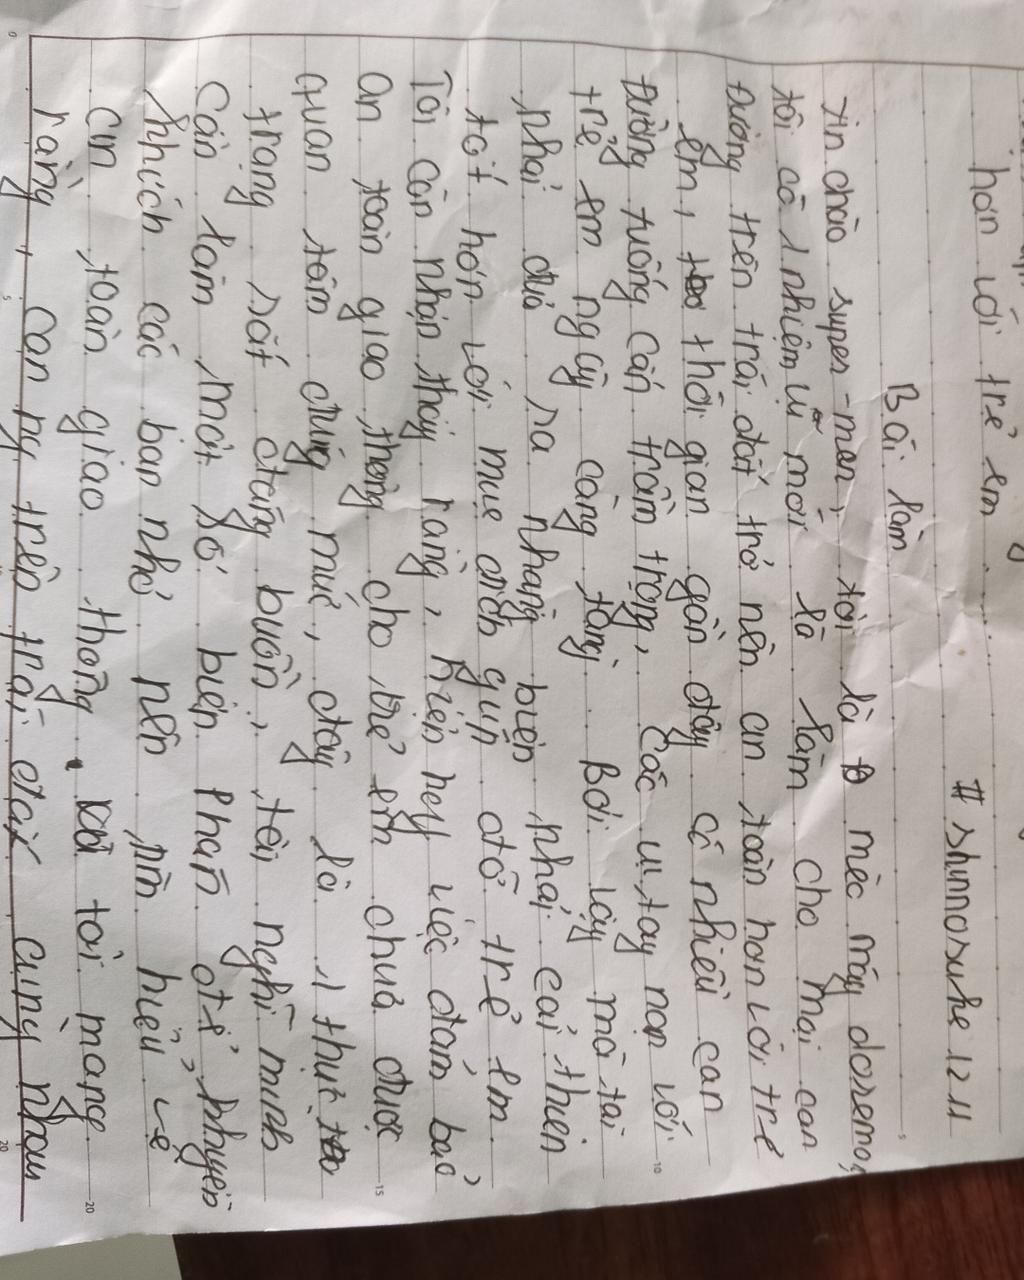 hơn với trẻ em.......
# shinnosuke 12.11
Bài làm
xin chào super-men, tôi là mèo máy doremon,
tôi có 1 nhiệm vụ mới là làm cho mọi con
đường trên trái đất trở nên an toàn hơn với trẻ
em, thời gian gần đây có nhiều con
đường tưởng cẩn trâm trọng, các vụ tay nạn với
trẻ em ngày càng tăng. Bởi lậy mà tôi
phải đưa ra nhang biện phái cải thiện
tốt hơn với mục đích giúp đỡ trẻ em
Tôi còn nhận thấy rằng, hiện nay việc đảm bảo
an toàn giao thông cho trẻ em chưa được
quan tâm đúng mức, đây là 1 thực
trạng rất đáng buồn, tôi nghĩ mình
cần làm một số biện pháp để khuyến
khích các bạn nhỏ nên tìm hiểu về
an toàn giao thông. tôi mang
rằng + con ng trên trái đất cùng nhau